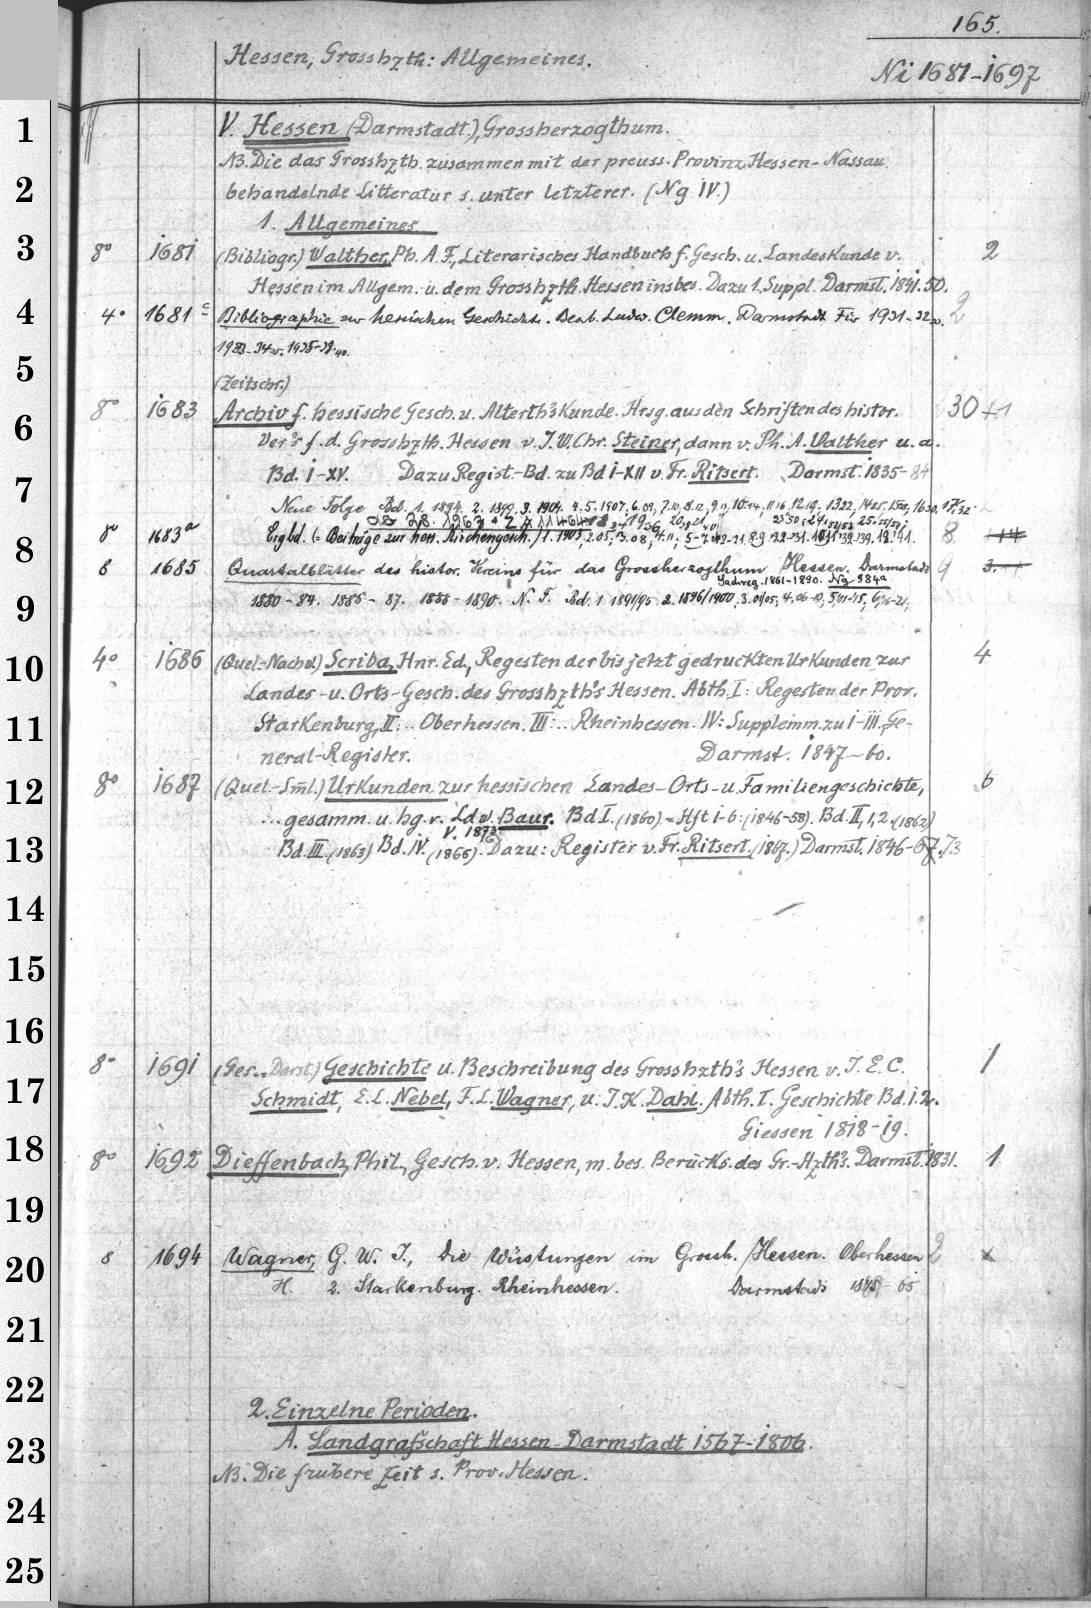 165.
Hessen, Grosshzth: Allgemeines.
Ni 1681-1697
1
V. Hessen (Darmstadt), Grossherzogthum.
NB. Die das Grosshzth. zusammen mit der preuss. Provinz Hessen-Nassau
2
behandelnde Litteratur s. unter letzterer. (Ng IV.)
1. Allgemeines
3
8° 1681 (Bibliogr.) Walther, Ph. A. F., Literarisches Handbuch f. Gesch. u. Landeskunde v. 2
Hessen im Allgem. u. dem Grosshzth. Hessen insbes. Dazu 1. Suppl. Darmst. 1841.50.
4
4° 1681c Bibliographie zur hessischen Geschichte. Bearb. Ludw. Clemm. Darmstadt Für 1931-32 2
1933-34 1938-39
5
(Zeitschr.)
6
8° 1683 Archiv f. hessische Gesch. u. Alterth's Kunde. Hrsg. aus den Schriften des histor. 30 +1
Ver's f. d. Grosshzth. Hessen v. J. W. Chr. Steiner, dann v. Ph. A. Walther u. a.
7
Bd. I-XV. Dazu Regist.-Bd. zu Bd I-XII v. Fr. Ritsert. Darmst. 1835-84
Neue Folge Bd. 1. 1894. 2. 1899. 3. 1904. 4. 5. 1907. 6. 09,
8
8° 1683a Ergbd. (= Beiträge zur hess. Kirchengesch.) 1. 1903, 2.05, 3.08, 4.11, 8 14
8 1685 Quartalblätter des histor. Vereins für das Grossherzogthum Hessen. Darmstadt 9 3.
Sachreg. 1861-1890. Ng 984a
9
1880-84. 1885-87. 1888-1890. N. F. Bd. 1 1891/95 2. 1896/1900, 3. 01/05, 4. 06-10, 5. 11-15, 6. 16-21,
10
4° 1686 (Quel.-Nachw.) Scriba, Hnr. Ed., Regesten der bis jetzt gedruckten Urkunden zur 4
Landes- u. Orts-Gesch. des Grosshzth's Hessen. Abth. I: Regesten der Prov.
11
Starkenburg, II: .. Oberhessen. III: .. Rheinhessen. IV: Supplemm. zu I-III. Ge-
neral-Register. Darmst. 1847-60.
12
8° 1687 (Quel.-Sml.) Urkunden zur hessischen Landes-Orts-u. Familiengeschichte, 6
... gesamm. u. hg. v. Ldw. Baur. Bd I. (1860) = Hft 1-6: (1846-59). Bd. II, 1,2. (1862)
V. 1873
13
Bd. III. (1863) Bd. IV. (1866). Dazu: Register v. Fr. Ritsert. (1867.) Darmst. 1846-67.73
14
15
16
8° 1691 (Ges.. Darst.) Geschichte u. Beschreibung des Grosshzth's Hessen v. J. E. C. 1
17
Schmidt, E. L. Nebel, F. L. Wagner, u. J. K. Dahl. Abth. I. Geschichte Bd. 1.2.
Giessen 1818-19.
18
8° 1692 Dieffenbach, Phil., Gesch. v. Hessen, m. bes. Berücks. des Gr.-Hzth's. Darmst. 1831. 1
19
20
8 1694 Wagner, G. W. J., Die Wüstungen im Grossh. Hessen. Oberhessen 2
H. 2. Starkenburg. Rheinhessen. Darmstadt 65
21
22
2. Einzelne Perioden.
23
A. Landgrafschaft Hessen-Darmstadt 1567-1806.
NB. Die frühere Zeit s. Prov. Hessen.
24
25